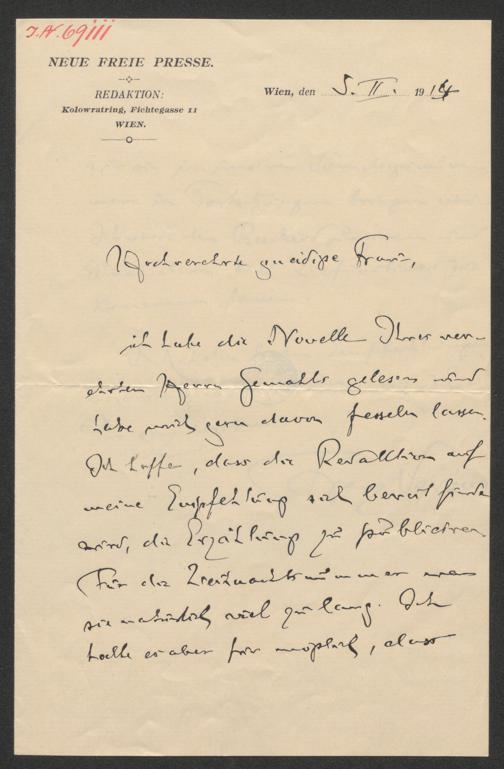 I.N. 69111
NEUE FREIE PRESSE.
REDAKTION:
Kolowratring, Fichtegasse 11
WIEN.
Wien, den 5. II. 1914
Hochverehrte gnädige Frau,
ich habe die Novelle Ihres ver-
ehrten Herrn Gemahls gelesen und
habe mich gern davon fesseln lassen.
Ich hoffe, dass die Redaktion auf
meine Empfehlung sich bereit finden
wird, die Erzählung zu publicieren.
Für die Weihnachtsnummer war
sie natürlich viel zu lang. Ich
halte es aber für möglich, dass